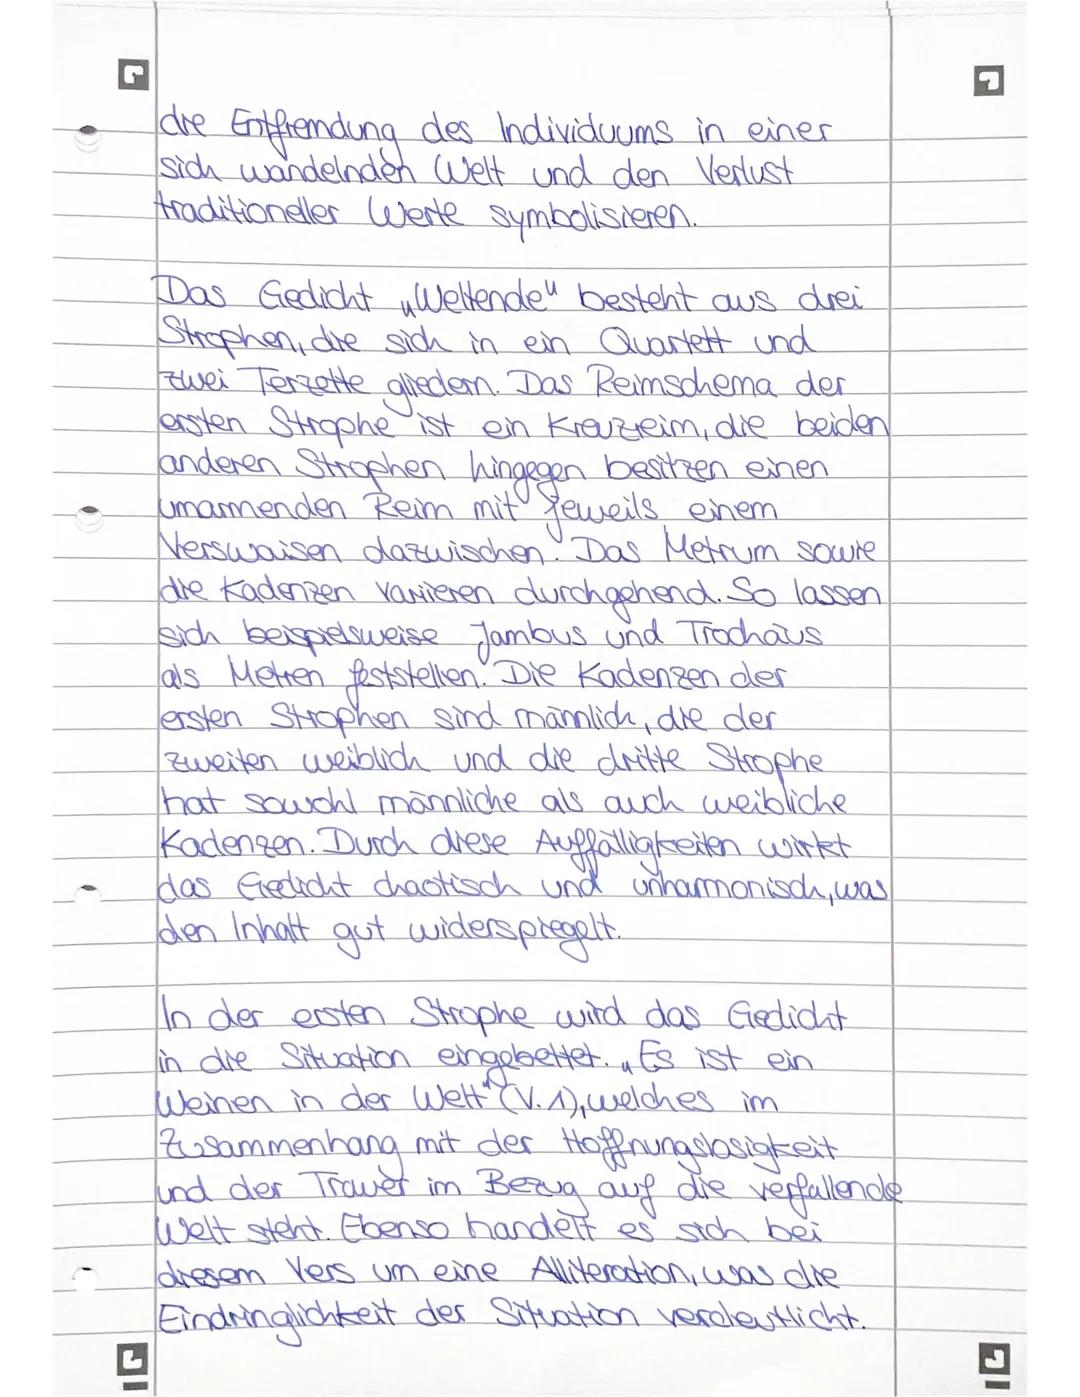 die Entfremdung des Individuums in einer
sich wandelnden Welt und den Verlust
traditioneller Werte symbolisieren.
Das Gedicht „Weltende" besteht aus drei
Strophen, die sich in ein Quartett und
zwei Terzette gliedern. Das Reimschema der
ersten Strophe ist ein Kreuzreim, die beiden
anderen Strophen hingegen besitzen einen
umarmenden Reim mit jeweils einem
Verswaisen dazwischen. Das Metrum sowie
die Kadenzen variieren durchgehend. So lassen
sich beispielsweise Jambus und Trochäus
als Metren feststellen. Die Kadenzen der
ersten Strophen sind männlich, die der
zweiten weiblich und die dritte Strophe
hat sowohl männliche als auch weibliche
Kadenzen. Durch diese Auffälligkeiten wirkt
das Gedicht chaotisch und unharmonisch, was
den Inhalt gut widerspiegelt.
In der ersten Strophe wird das Gedicht
in die Situation eingebettet. „Es ist ein
Weinen in der Welt" (V. 1), welches im
Zusammenhang mit der Hoffnungslosigkeit
und der Trauer im Bezug auf die verfallende
Welt steht. Ebenso handelt es sich bei
diesem Vers um eine Alliteration, was die
Eindringlichkeit der Situation verdeutlicht.